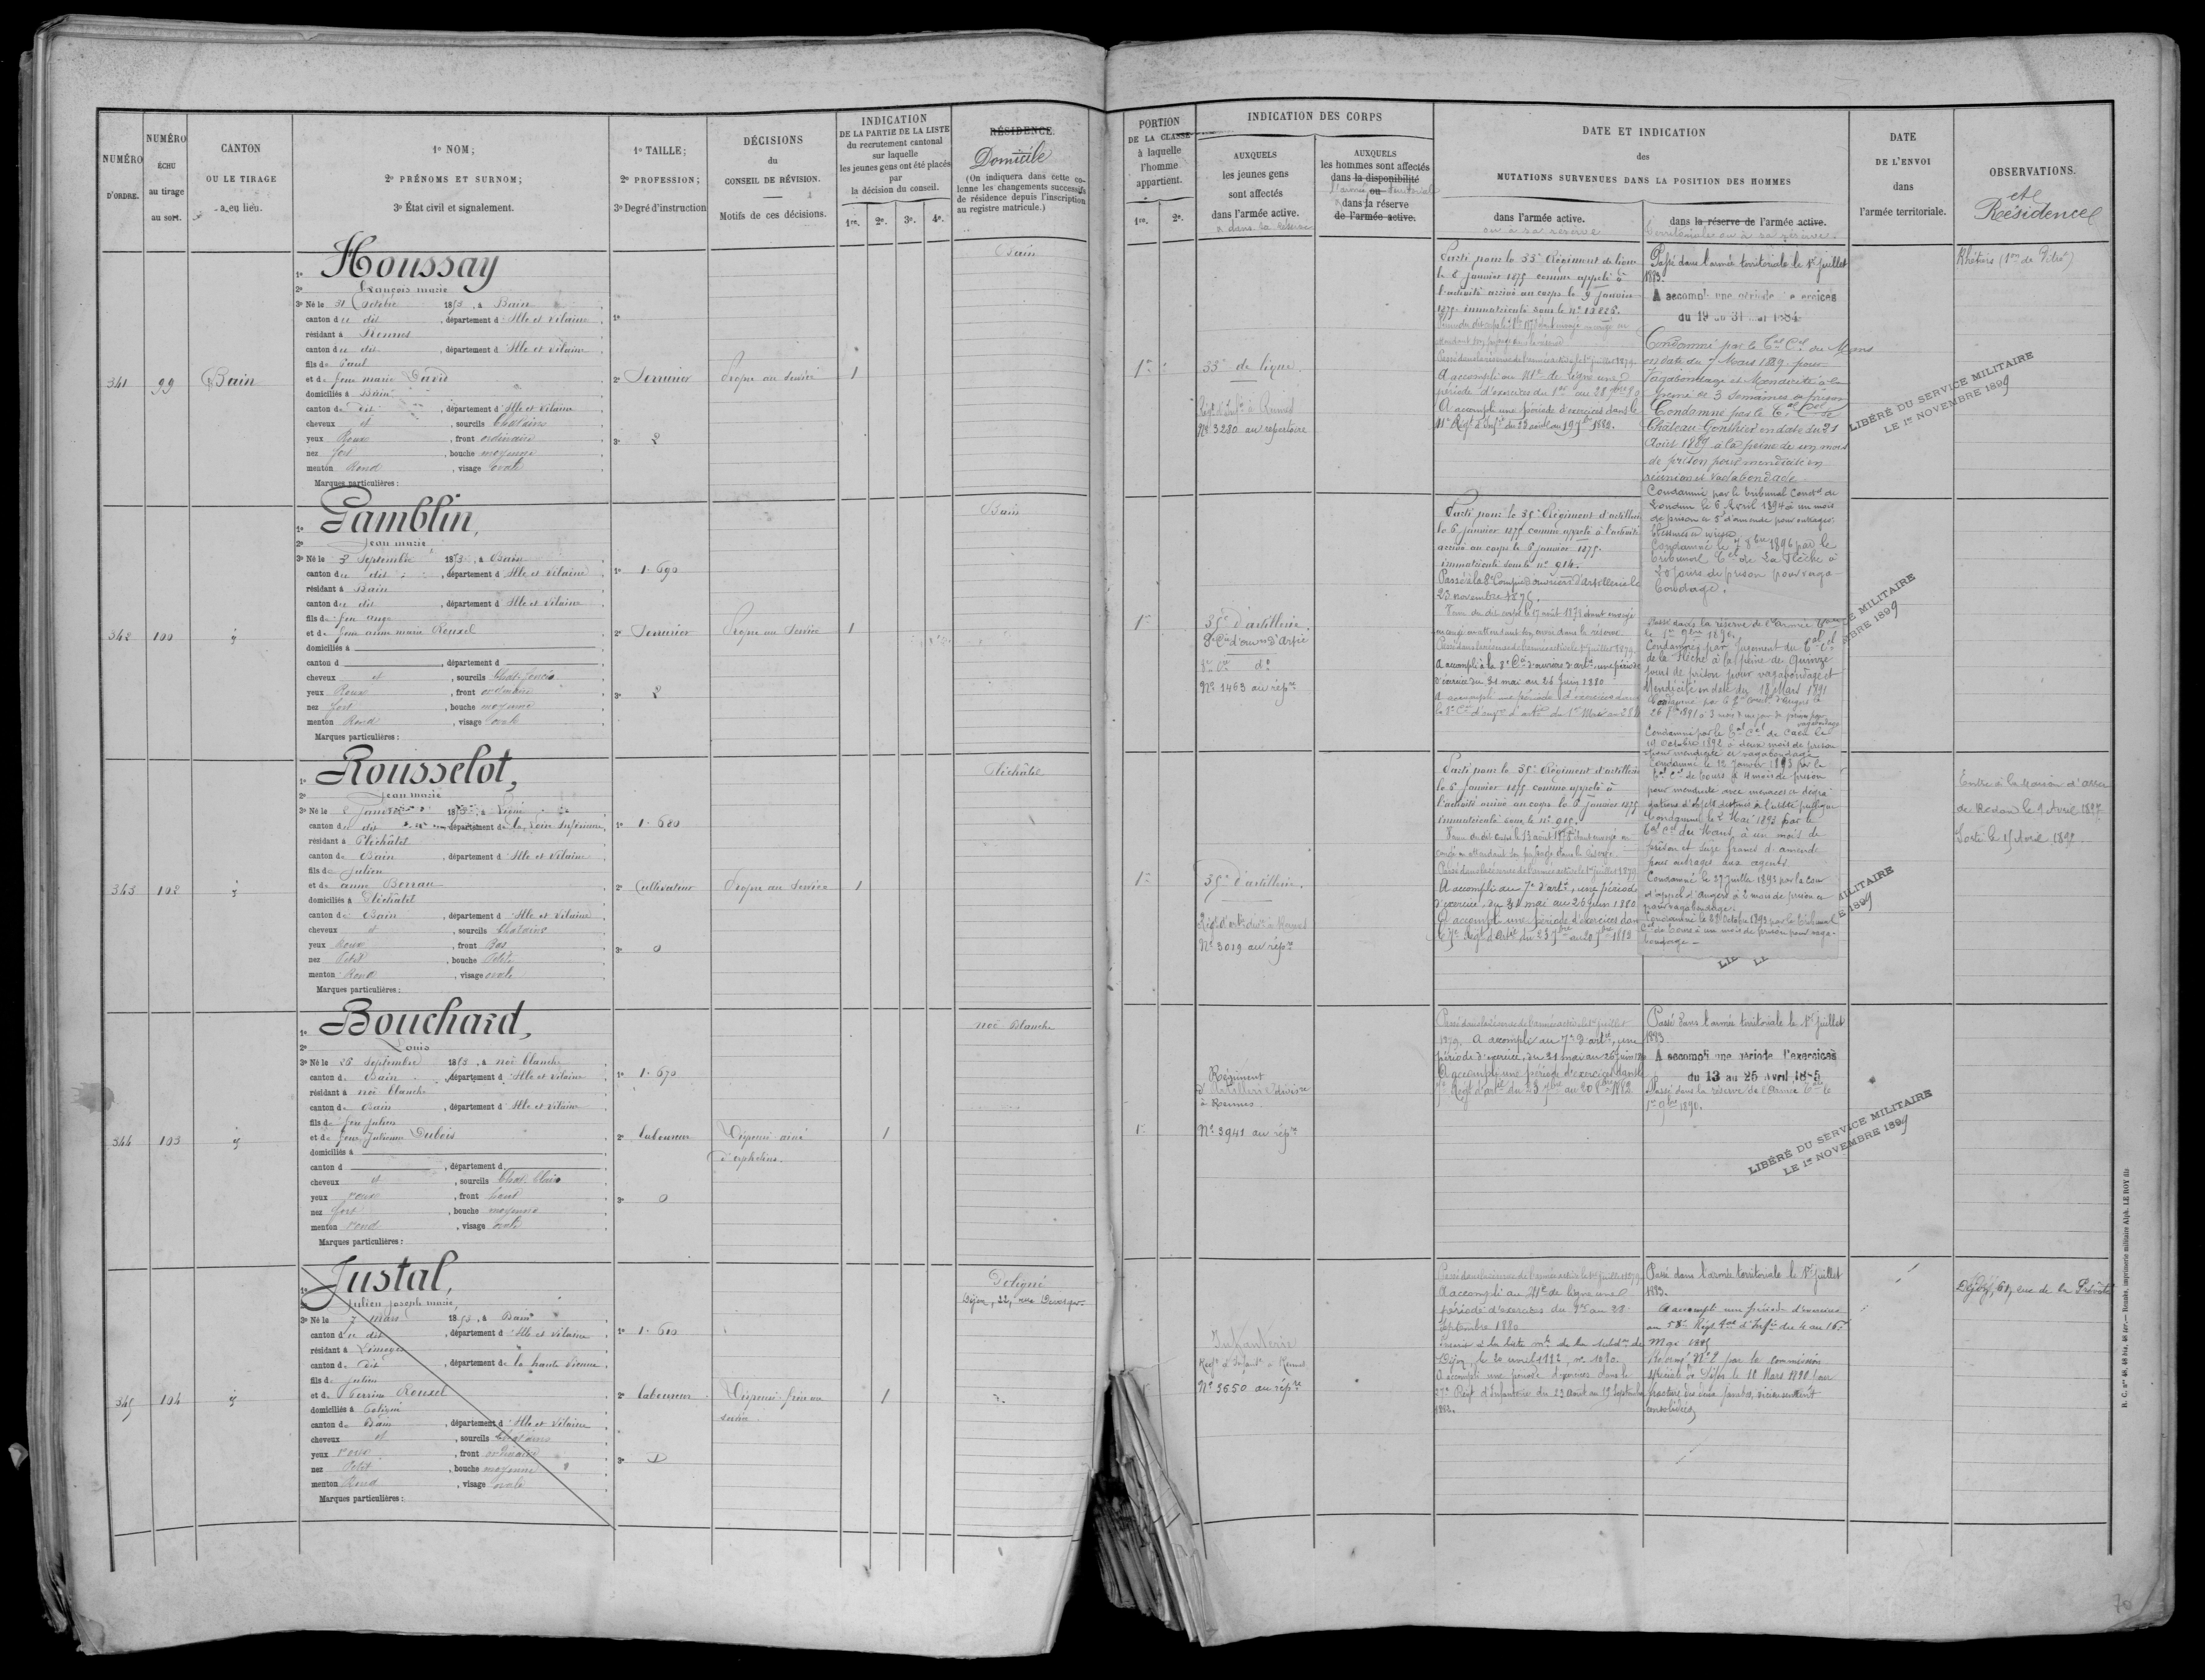 NUMÉRO
D'ORDRE.
NUMÉRO
ÉCHU
au tirage
au sort.
CANTON
OU LE TIRAGE
a eu lieu.
1º NOM;
2º PRÉNOMS ET SURNOM;
3º État civil et signalement.
1º TAILLE;
2º PROFESSION;
3º Degré d'instruction
DÉCISIONS
du
CONSEIL DE RÉVISION.
Motifs de ces décisions.
INDICATION
DE LA PARTIE DE LA LISTE
du recrutement cantonal
sur laquelle
les jeunes gens ont été placés
par
la décision du conseil.
1re. 2e. 3e. 4e.
RÉSIDENCE.
Domicile
(On indiquera dans cette co-
lonne les changements successifs
de résidence depuis l'inscription
au registre matricule.)
341
99
Bain
1º Houssay
2º François marie
3º Né le 31 Octobre 1853, à Bain
canton du dit, département d'Ille et Vilaine
résidant à Rennes
canton du dit, département d'Ille et Vilaine
fils de Paul
et de feue marie David
domiciliés à Bain
canton du dit, département d'Ille et Vilaine
cheveux et, sourcils Chatains
yeux Roux, front ordinaire
nez fort, bouche moyenne
menton Rond, visage ovale
Marques particulières :
1º
2º Serrurier
3º 2
Propre au Service
1
Bain
342
100
1º Gamblin,
2º Jean marie
3º Né le 3 Septembre 1853, à Bain
canton du dit, département d'Ille et Vilaine
résidant à Bain
canton du dit, département d'Ille et Vilaine
fils de feu ange
et de feue anne marie Rouxel
domiciliés à
canton d , département d
cheveux et, sourcils Chat. foncés
yeux Roux, front ordinaire
nez fort, bouche moyenne
menton Rond, visage ovale
Marques particulières :
1º 1.690
2º Serrurier
3º 2
Propre au Service
1
Bain
343
102
1º Rousselot,
2º Jean marie
3º Né le 2 Janvier 1853, à
canton du dit, département de la Loire Inférieure
résidant à Pléchâtel
canton de Bain, département d'Ille et Vilaine
fils de Julien
et de anne
domiciliés à Pléchâtel
canton de Bain, département d'Ille et Vilaine
cheveux et, sourcils Chatains
yeux Roux, front Bas
nez Petit, bouche Petite
menton Rond, visage ovale
Marques particulières :
1º 1.680
2º Cultivateur
3º 0
Propre au Service
1
Pléchâtel
344
103
1º Bouchard,
2º Louis
3º Né le 26 Septembre 1853, à noë blanche
canton de Bain, département d'Ille et Vilaine
résidant à noë blanche
canton de Bain, département d'Ille et Vilaine
fils de feu Julien
et de feue Julienne Dubois
domiciliés à
canton d , département d
cheveux et, sourcils Chat. Clairs
yeux roux, front haut
nez fort, bouche moyenne
menton rond, visage ovale
Marques particulières :
1º 1.670
2º Laboureur
3º 0
Dispensé ainé
d'orphelins.
1
noë Blanche
345
104
1º Justal,
2º Julien Joseph marie
3º Né le 7 mars 1853, à Bain
canton du dit, département d'Ille et Vilaine
résidant à Limoges
canton du dit, département de la haute Vienne
fils de Julien
et de Perrine Rouxel
domiciliés à Poligné
canton de Bain, département d'Ille et Vilaine
cheveux et, sourcils Chatains
yeux roux, front ordinaire
nez Petit, bouche moyenne
menton Rond, visage ovale
Marques particulières :
1º 1.610
2º Laboureur
3º
Dispensé frère au
service
1
Poligné
Dijon, 22, rue
PORTION
DE LA CLASSE
à laquelle
l'homme
appartient.
1re. 2e.
INDICATION DES CORPS
AUXQUELS
les jeunes gens
sont affectés
dans l'armée active.
& dans sa Réserve
AUXQUELS
les hommes sont affectés
dans la disponibilité
l'armée ou territoriale
dans la réserve
de l'armée active.
DATE ET INDICATION
des
MUTATIONS SURVENUES DANS LA POSITION DES HOMMES
dans l'armée active.
ou à sa réserve
dans la réserve de l'armée active.
territoriale ou à sa réserve.
DATE
DE L'ENVOI
dans
l'armée territoriale.
OBSERVATIONS.
et
Résidences
1re
33e de ligne.
Nº 3280 au répertoire
Parti pour le 33e Régiment de ligne
le 6 Janvier 1875 comme appelé à
l'activité arrivé au corps le 9 Janvier
1875 immatriculé sous le nº
Passé dans la réserve de l'armée active le 1er juillet 1879
A accompli au 41e de ligne une
période d'exercices du 1er au 28 7bre 80
A accompli une période d'exercices dans le
41e Régt d'Infie du 23 août au 19 7bre 1882.
Passé dans l'armée territoriale le 1er Juillet
1883.
A accompli une période d'exercices
du 19 au 31 Mai 1884
Condamné par le Cal Cel du Mans
en date du 7 Mars 1889 pour
Vagabondage et Mendicité à la
peine de 3 semaines de prison
Condamné par le Cal Cel de
Château-Gonthier en date du 21
Août 1889 à la peine de un mois
de prison pour mendicité en
réunion et vagabondage
Condamné par le tribunal Correl de
Loudun le 6 Avril 1894 à un mois
de prison et 5f d'amende pour outrages.
Condamné le 7 8bre 1896 par le
tribunal Cel de La Flèche à
jours de prison pour vaga-
bondage.
Passé dans la réserve de l'armée Tale
le 1er 9bre 1890.
Condamné par jugement du Cal Cel
de la Flèche à la peine de Quinze
jours de prison pour vagabondage et
Mendicité en date du 18 Mars 1891
Condamné par le Cal Correl d'Angers le
26 1891 à 3 mois de prison pour
vagabondage
Condamné par le Cal Cel de Caen le
19 Octobre 1892 à deux mois de prison
pour mendicité et vagabondage
Condamné le 12 Janvier 1893 par le
Cal Cel de Tours à 4 mois de prison
pour mendicité avec menaces et dégra-
dations d'objets destinés à l'utilité publique
Condamné le 2 Mai 1893 par le
Cal Cel du Mans à un mois de
prison et seize francs d'amende
pour outrages aux agents.
Condamné le 27 Juillet 1893 par la Cour
d'appel d'Angers à 2 mois de prison
pour vagabondage.
Condamné le 28 Octobre 1893 par le tribunal
Cel de Tours à un mois de prison pour vaga-
bondage.
LIBÉRÉ DU SERVICE MILITAIRE
LE 1er NOVEMBRE 1899
Rhétiers (1re de Vitré)
1re
35e d'artillerie.
8e Cie d'ouvrs d'Artie
8e Cie dº
Nº 1463 au répre
Parti pour le 35e Régiment d'artillerie
le 6 Janvier 1875 comme appelé à l'activité
arrivé au corps le 6 Janvier 1875.
immatriculé sous le nº 914.
Passé à la 8e Compie d'ouvriers d'artillerie le
23 novembre 1875.
Passé dans la réserve de l'armée active le 1er Juillet 1879
A accompli à la 8e Cie d'ouvriers d'artie une période
d'exercice du 31 mai au 26 Juin 1880
A accompli une période d'exercices dans
la 8e Cie d'ouvrs d'artie du 1er Mai au 28
MILITAIRE
NOVEMBRE 1899
1re
35e d'artillerie.
Nº 3019 au répre
Parti pour le 35e Régiment d'artillerie
le 6 Janvier 1875 comme appelé à
l'activité arrivé au corps le 6 Janvier 1875
immatriculé sous le nº 915.
Passé dans la réserve de l'armée active le 1er juillet 1879
A accompli au 7e d'artie, une période
d'exercice, du 31 mai au 26 juin 1880
A accompli une période d'exercices dans
le 7e Régt d'Artie du 23 7bre au 20 8bre 1882
MILITAIRE
1899
Entré à la maison d'arrêt
de Redon le 9 Avril 188
Sorti le 15 Avril 188
1re
Régiment
d'Artillerie divisre
à Rennes
Nº 3941 au répre
Passé dans la réserve de l'armée active le 1er juillet
1879. A accompli au 7e d'artie, une
période d'exercice, du 31 mai au 26 juin 1880
A accompli une période d'exercices dans le
7e Régt d'artie du 23 7bre au 20 8bre 1882
Passé dans l'armée territoriale le 1er Juillet
1883.
A accompli une période d'exercices
du 13 au 25 Avril 1885
Passé dans la réserve de l'Armée Tale le
1er 9bre 1890.
LIBÉRÉ DU SERVICE MILITAIRE
LE 1er NOVEMBRE 1899
Infanterie
Nº 3650 au répre
Passé dans la réserve de l'armée active le 1er juillet 1879
A accompli au 41e de ligne une
période d'exercices du 1er au 28
Septembre 1880
Dijon, le 20 avril 1882, nº 1080.
A accompli une période d'exercices dans le
27e Régt d'Infanterie du 22 Août au 19 Septembre
1882.
Passé dans l'armée territoriale le 1er Juillet
1883.
A accompli une période d'exercices
au 58e Régt Tal d'Infie du 4 au 16
Mai 1885
Réformé Nº 2 par la Commission
Spéciale de Dijon le 18 Mars 1890 pour
fracture des deux jambes, vicieusement
consolidées
Dijon, 61, rue de la Prévôté
R. C. nos 48, 48 bis, 48 ter. — Rennes, imprimerie militaire Alph. LE ROY fils
70